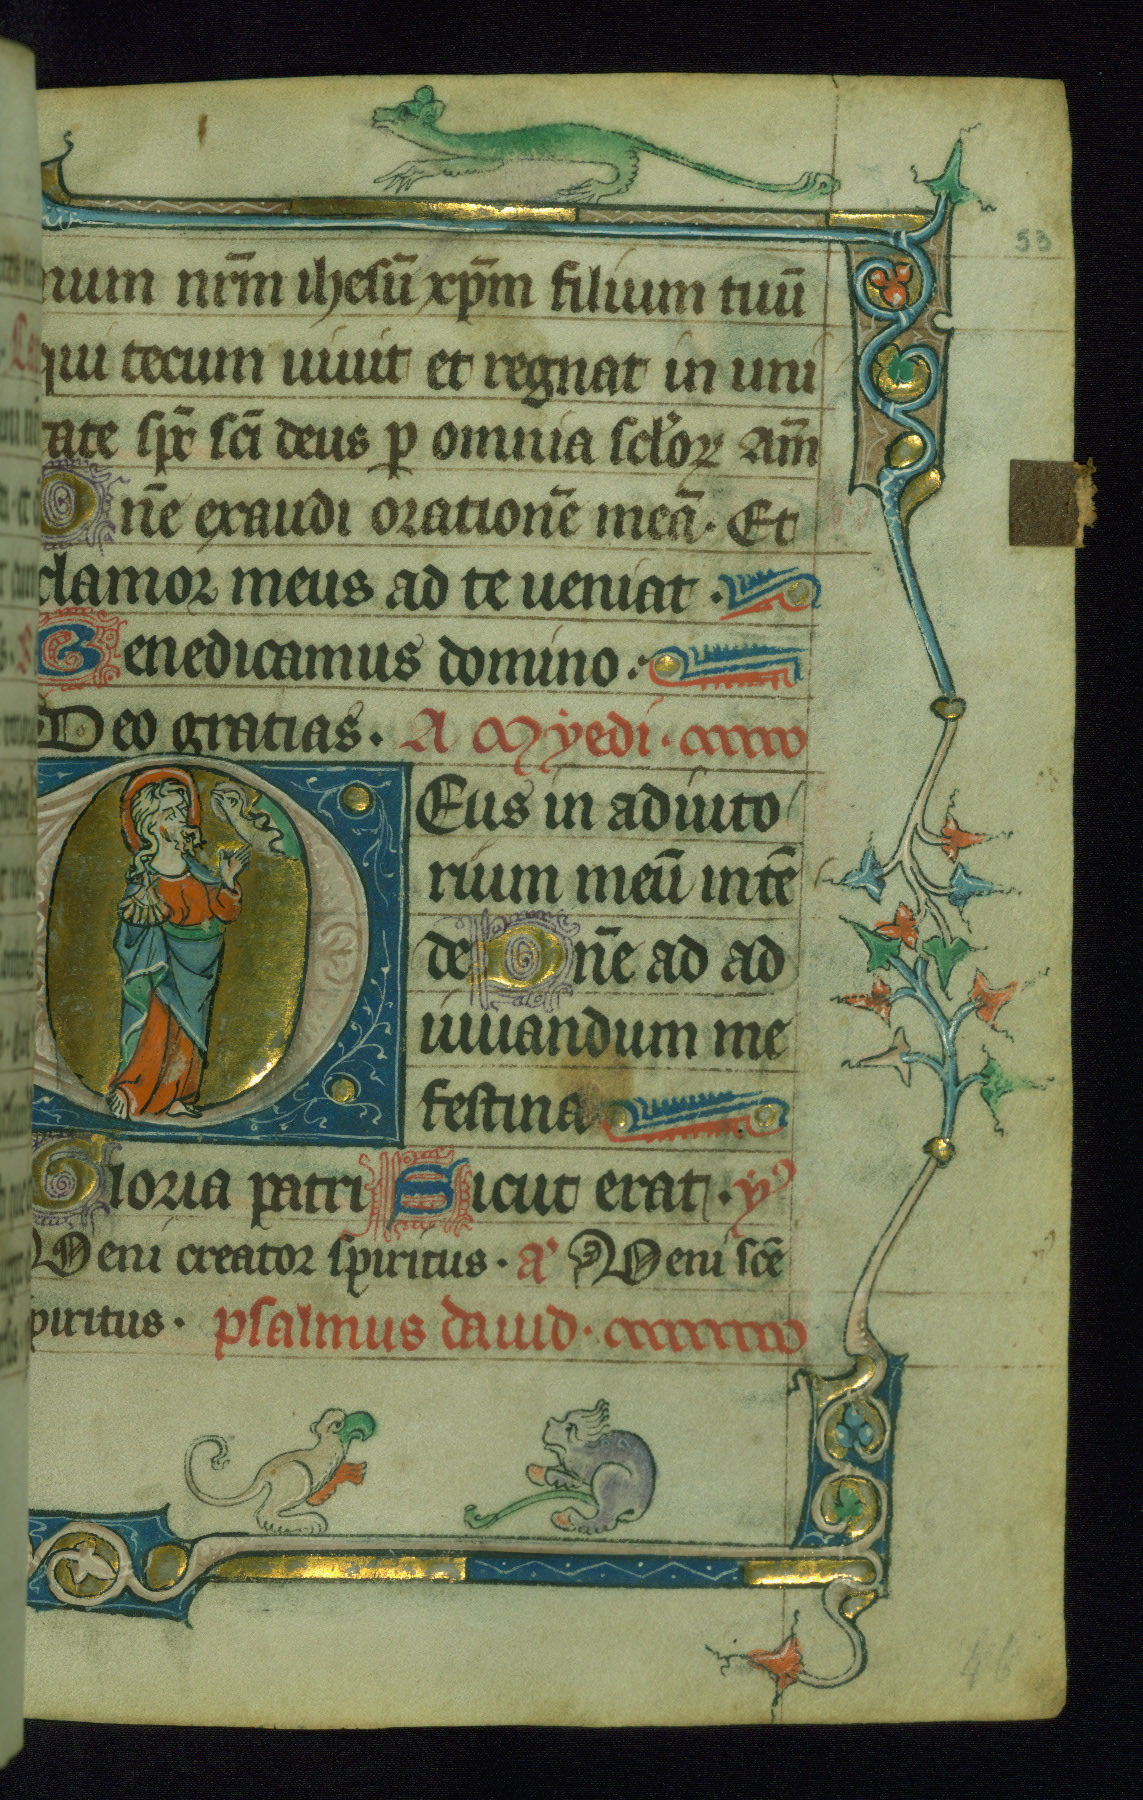 53
num nr̄m ihesū xp̄m filium tuū
qui tecum uiuit et regnat in uni
tate sp̄c sc̄i deus p̄ omnia sclōꝝ Am̄
Dn̄e exaudi orationē meā. Et
clamor meus ad te ueniat.
Benedicamus domino.
Deo gratias. A Myedi.
Deus in adiuto
rium meū intē
de Dn̄e ad ad
iuuandum me
festina
Gloria patri Sicut erat. y
Veni creator spiritus. a Veni sc̄e
spiritus. psalmus dauid.
46